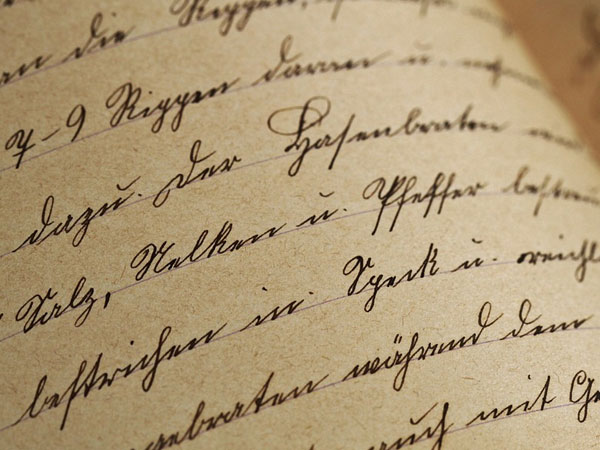 an die Rippen,
7-9 Rippen daran u.
dazu. Der Hasenbraten
Salz, Nelken u. Pfeffer
bestrichen in Speck u.
gebraten während dem
auch mit